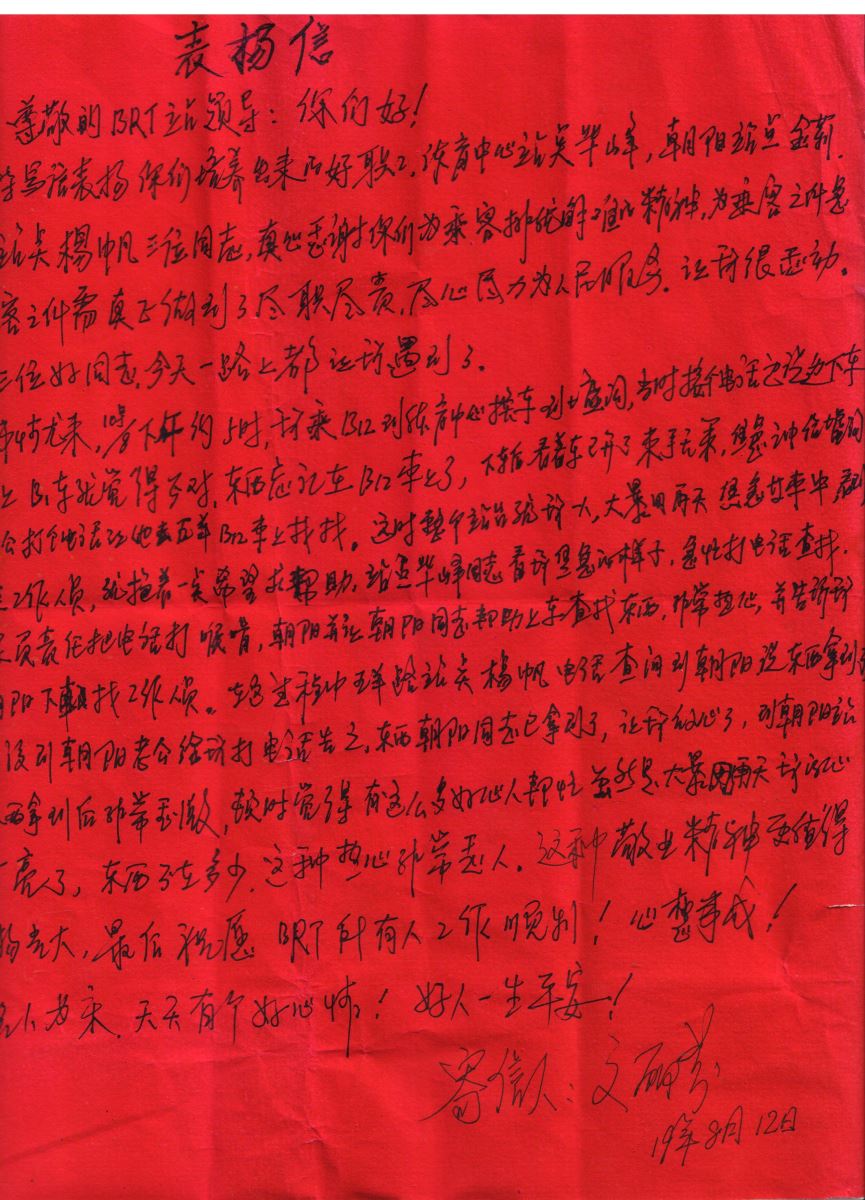 表杨信
尊敬的BRT站领导：你们好！
写信表扬你们培养出来的好职工，体育中心站员毕峰，朝阳站员金莉
站员杨帆三位同志，真心感谢你们为乘客排忧解难的精神，为乘客之所急
客之所需真正做到了尽职尽责，尽心尽力为人民服务。让我很感动。
三位好同志，今天一路上都让我遇到了。
下午约5时，我乘B12到体育中心换车到，当时接个电话边说边下车
上B1车就觉得不对，东西忘记在B12车上了，下车后看着车已开了束手无策，
公打个电话让他去B12车上找找。这时整个站台就我一人，大暴雨天
工作人员，就抱着一点希望求帮助，站员毕峰同志看我很急的样子，急忙打电话查找，
责任把电话打，朝阳并让朝阳同志帮助上车查找东西，非常热心，并告诉我
朝阳下车找工作人员。在途中站员杨帆电话查问到朝阳说东西拿到
没到朝阳老公给我打电话告之，东西朝阳同志已拿到了，让我放心了，到朝阳站
西拿到后非常感激，顿时觉得有这么多好心人帮忙虽然是大暴雨天我的心
亮了，东西不在多少，这种热心非常感人。这种敬业精神更值得
扬光大，最后祝愿BRT所有人工作顺利！心想事成！
人为乐，天天有个好心情！好人一生平安！
寄信人：文丽芳
19年8月12日